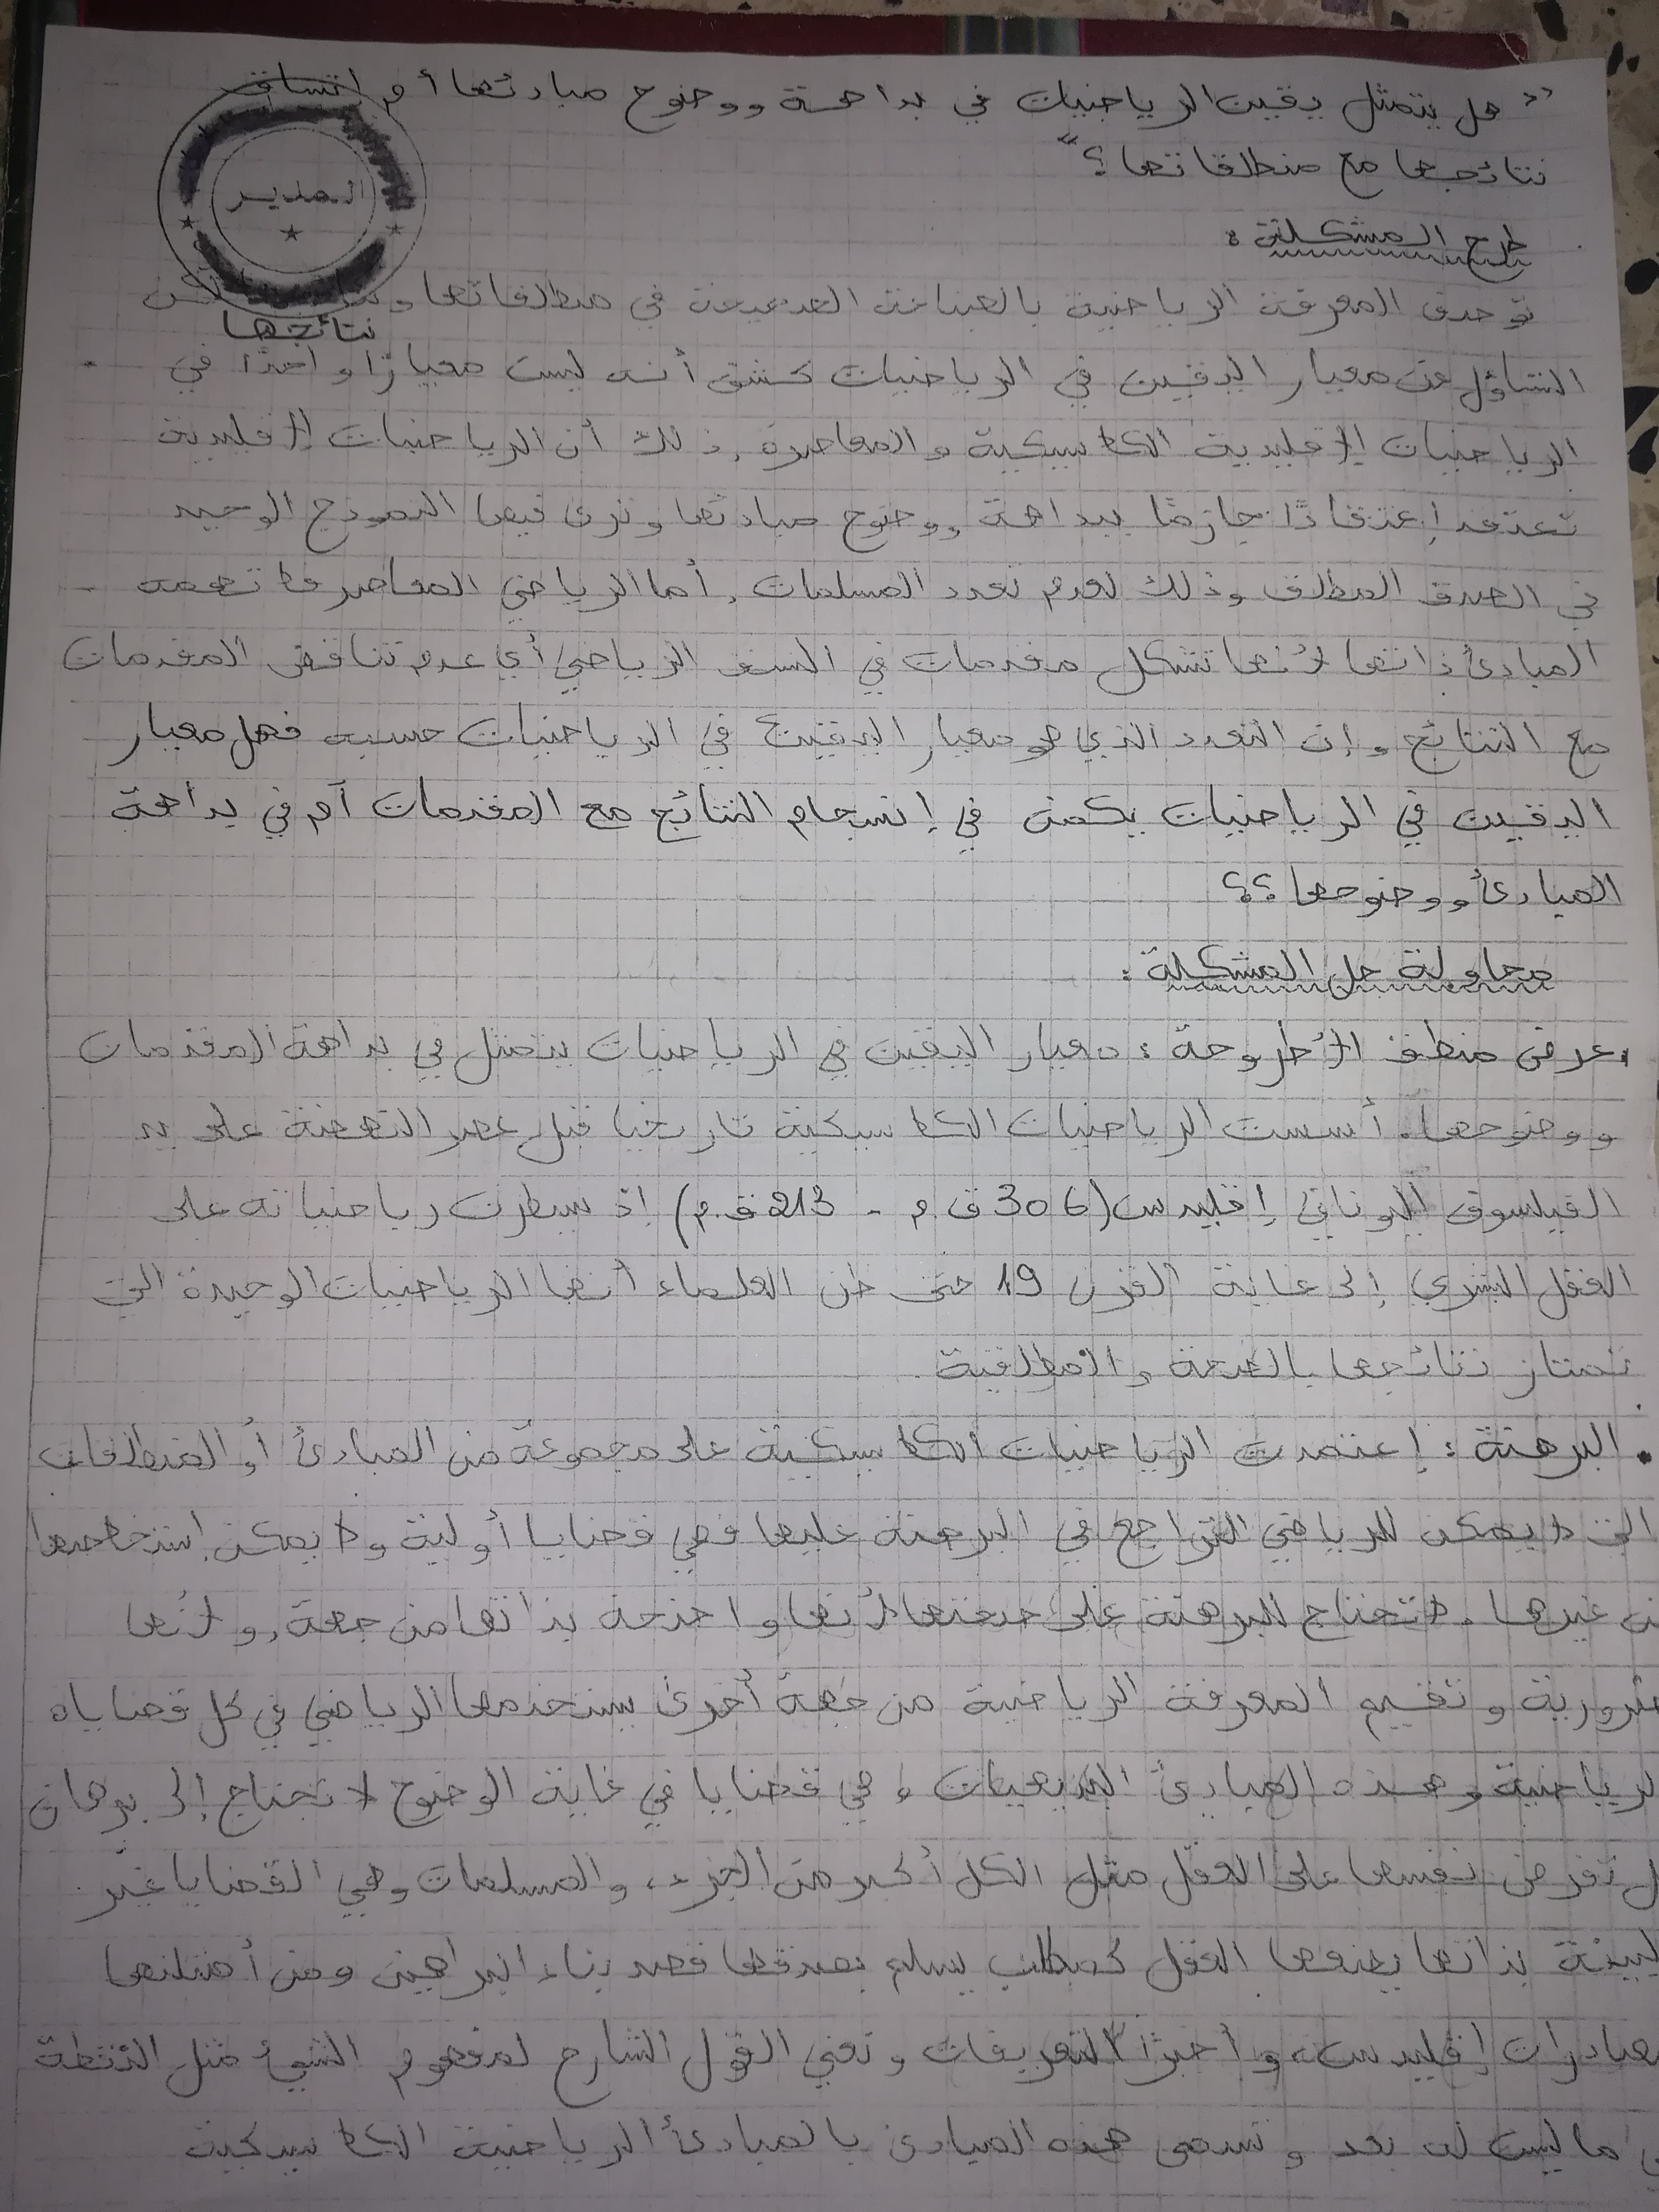 "هل يتمثل يقين الرياضيات في بداهة ووضوح مبادئها أم إتساق
نتائجها مع منطلقاتها؟"
المدير
طرح المشكلة :
توصف المعرفة الرياضية بالصناعة الصحيحة في منطلقاتها و لكن
نتائجها
التساؤل عن معيار اليقين في الرياضيات كشف أنه ليست معيارًا واحدًا في
الرياضيات الإقليدية الكلاسيكية والمعاصرة, ذلك أن الرياضيات الإقليدية
تعتقد إعتقادًا جازمًا ببداهة ووضوح مبادئها وترى فيها النموذج الوحيد
في الصدق المطلق وذلك لعدم تعدد المسلمات, أما الرياضي المعاصر فلا تهمه
المبادئ ذاتها لأنها تشكل مقدمات في النسق الرياضي أي عدم تناقض المقدمات
مع النتائج وإن التعدد الذي هو معيار اليقين في الرياضيات حسبه فهل معيار
اليقين في الرياضيات يكمن في إنسجام النتائج مع المقدمات أم في بداهة
المبادئ ووضوحها؟؟
محاولة حل المشكلة :
. عرض منطق الأطروحة : معيار اليقين في الرياضيات يتمثل في بداهة المقدمات
ووضوحها. أسست الرياضيات الكلاسيكية تاريخيا قبل عصر النهضة على يد
الفيلسوف اليوناني إقليدس (306 ق.م - 213 ق.م) إذ سيطرت رياضياته على
العقل البشري إلى غاية القرن 19 حتى ظن العلماء أنها الرياضيات الوحيدة التي
تمتاز نتائجها بالصحة والمطلقية
. البرهنة : إعتمدت الرياضيات الكلاسيكية على مجموعة من المبادئ أو المنطلقات
التي لا يمكن للرياضي التراجع في البرهنة عليها فهي قضايا أولية ولا يمكن استخلاصها
من غيرها. لا تحتاج للبرهنة على صحتها لأنها واضحة بذاتها من جهة, ولأنها
ضرورية و تقييم المعرفة الرياضية من جهة أخرى يستخدمها الرياضي في كل قضاياه
الرياضية وهذه المبادئ البديهيات وهي قضايا في غاية الوضوح لا تحتاج إلى برهان
بل تفرض نفسها على العقل مثل الكل أكبر من الجزء، والمسلمات وهي القضايا غير
البينة بذاتها يضعها العقل كمطلب يسلم بصدقها قصد بناء البراهين ومن أمثلتها
مصادرات إقليدس، وأخيرًا التعريفات وتعني القول الشارح لمفهوم الشيئ مثل النقطة
هي ما ليست له بعد وتسمى هذه المبادئ بالمبادئ الرياضية الكلاسيكية